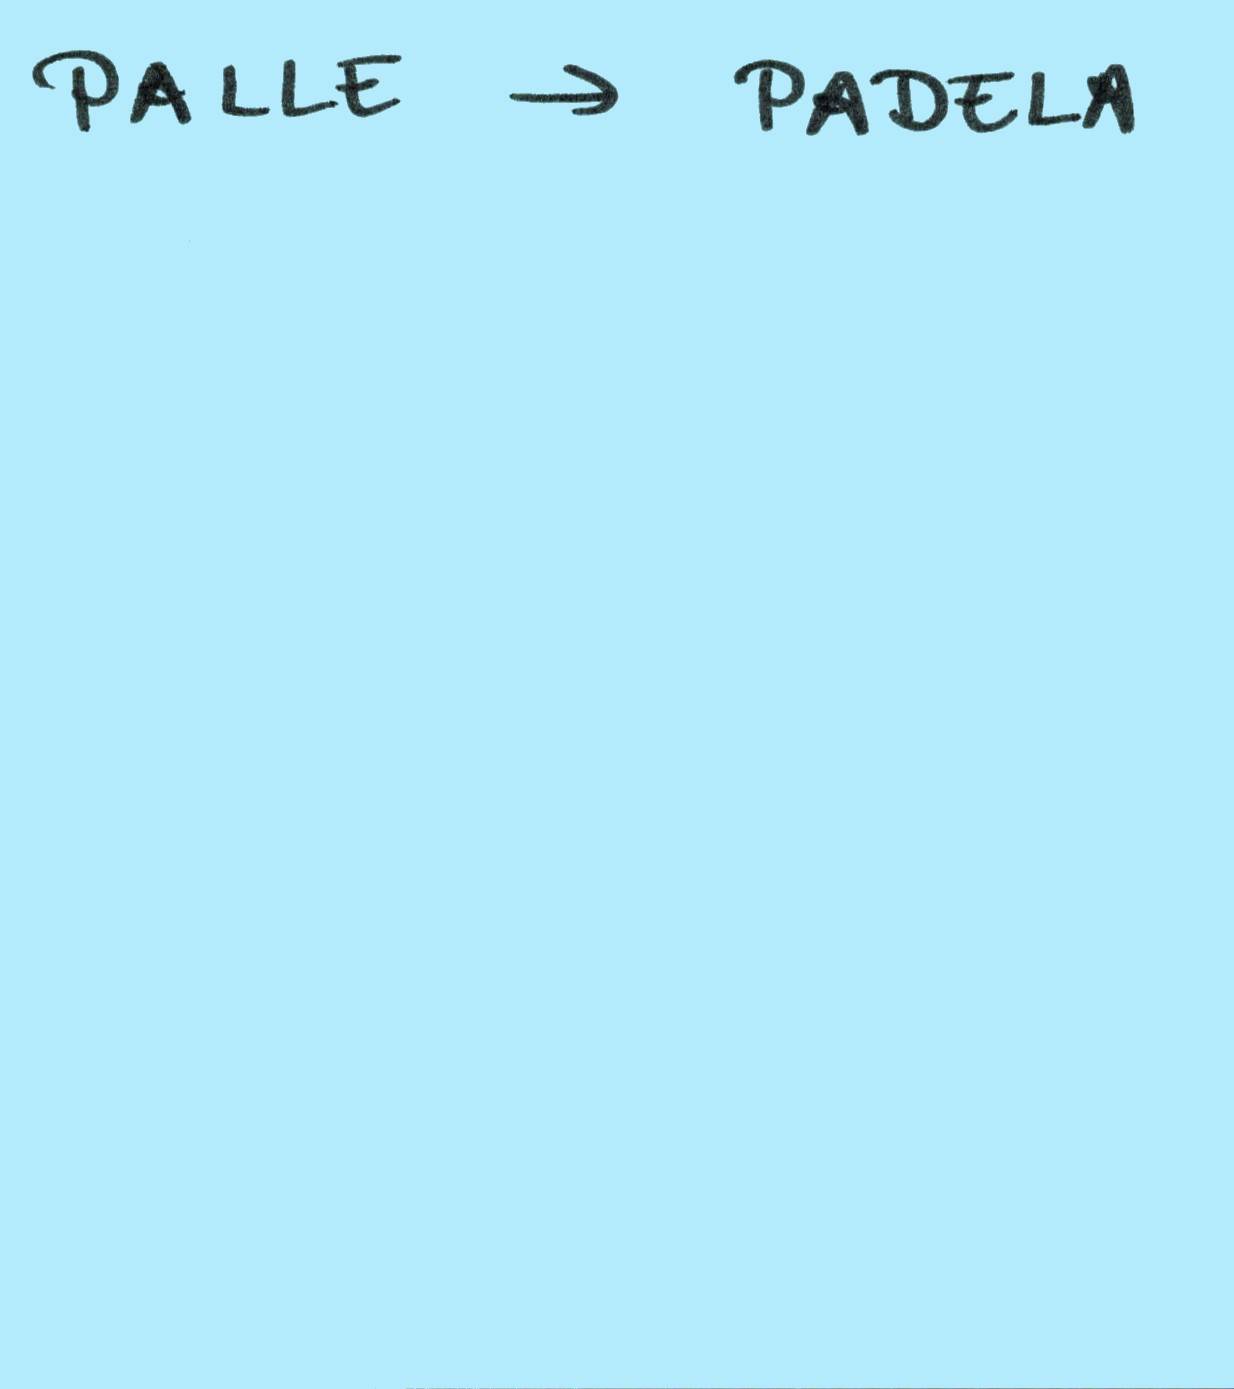 PALLE → PADELA